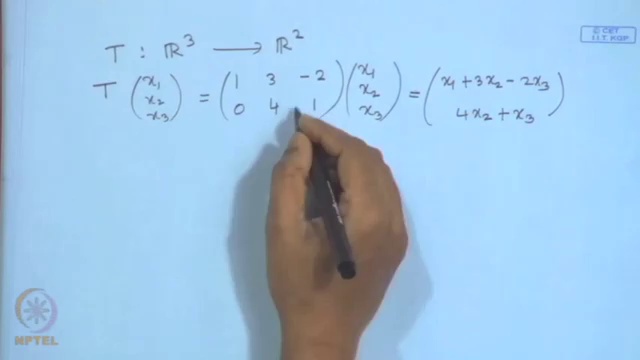 © CET
I.I.T. KGP
T : ℝ³ ⟶ ℝ²
T (x₁ x₂ x₃) = (1 3 -2 0 4 1) (x₁ x₂ x₃) = (x₁ + 3x₂ - 2x₃ 4x₂ + x₃)
NPTEL